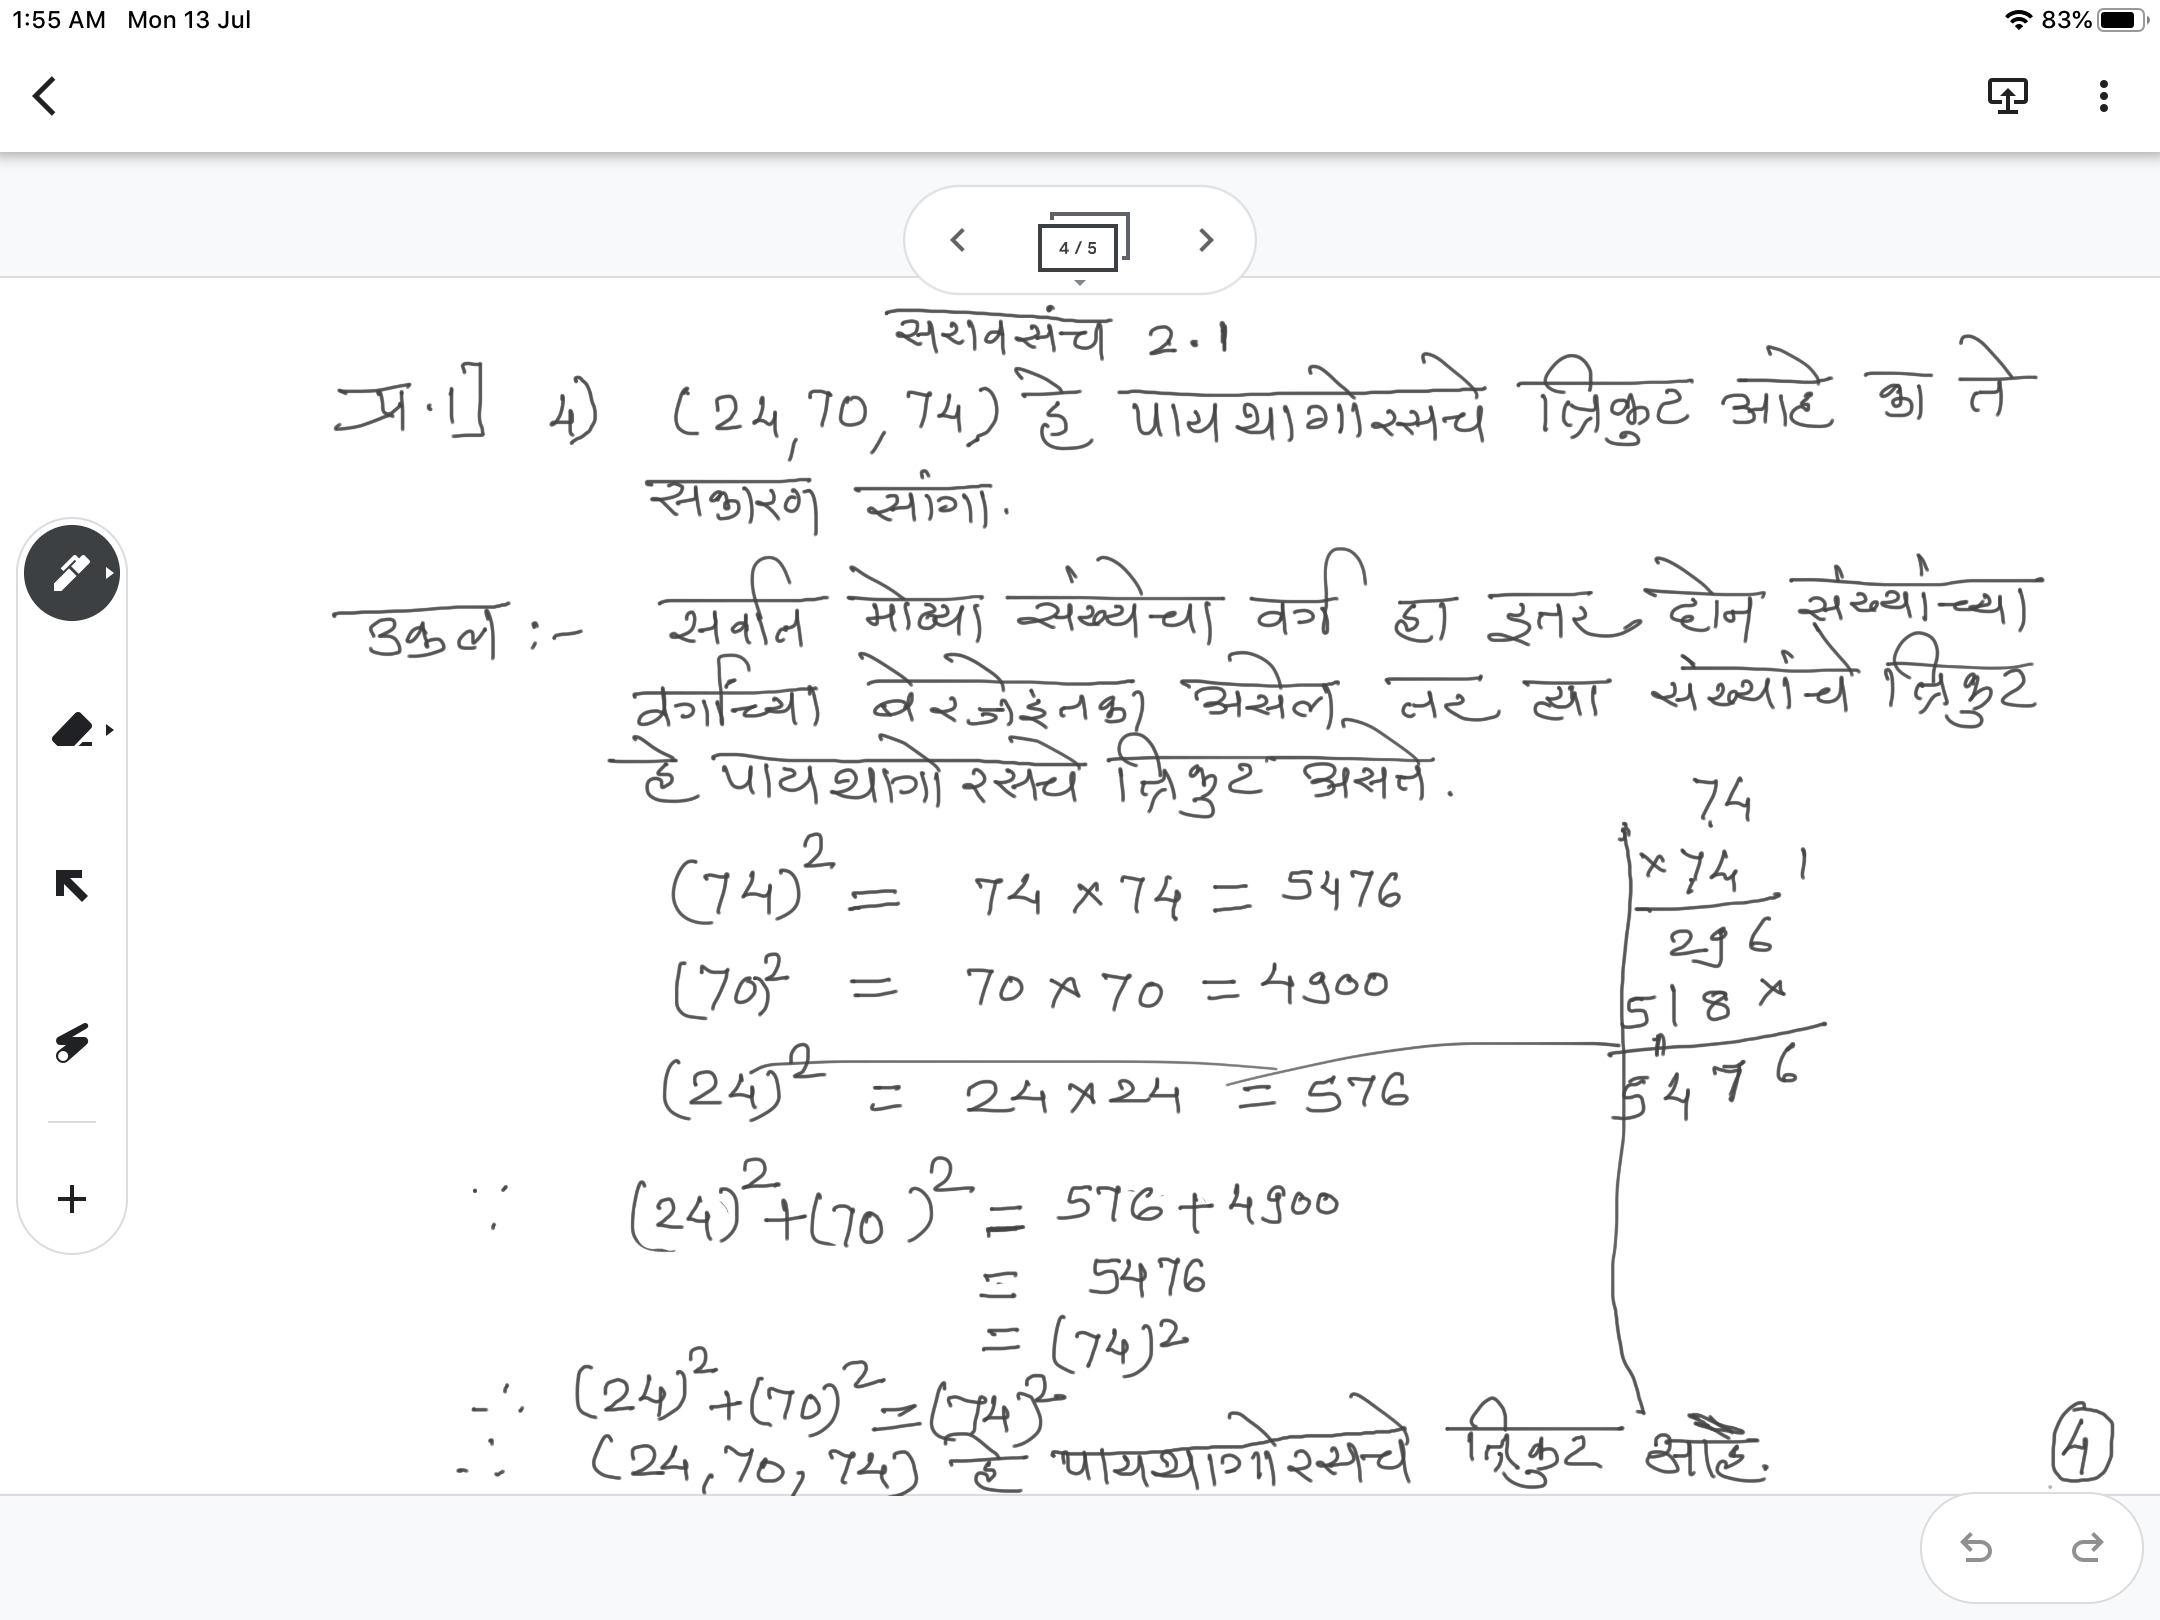 1:55 AM Mon 13 Jul 83%
4 / 5
सरावसंच 2.1
प्र.1] 4) (24,70,74) हे पायथागोरसचे त्रिकुट आहे का ते
सकारण सांगा.
उकल :- सर्वात मोठ्या संख्येचा वर्ग हा इतर दोन संख्यांच्या
वर्गाच्या बेरजेइतका असेल तर त्या संख्यांचे त्रिकुट
हे पायथागोरसचे त्रिकुट असते.
(74)² = 74 × 74 = 5476
(70)² = 70 × 70 = 4900
(24)² = 24 × 24 = 576
∵ (24)² + (70)² = 576 + 4900
= 5476
= (74)²
∴ (24)² + (70)² = (74)²
∴ (24,70,74) हे पायथागोरसचे त्रिकुट आहे.
74
×74 1
296
518×
5476
4